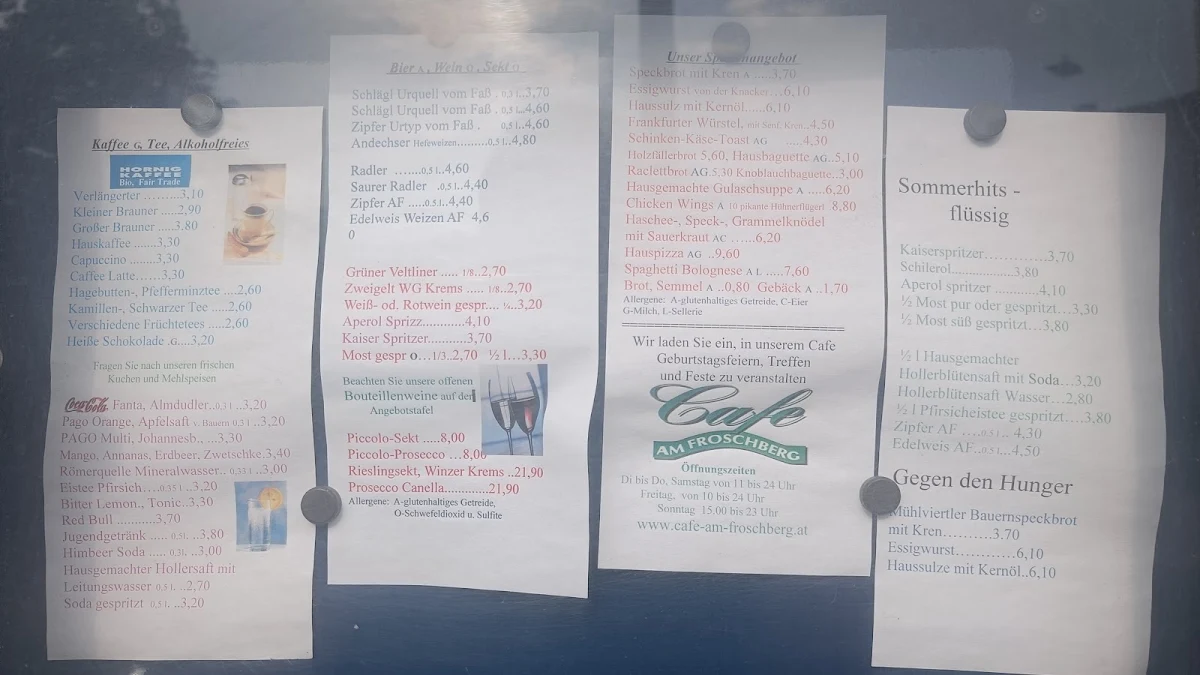 Kaffee G, Tee, Alkoholfreies
HORNIG
KAFFEE
Bio, Fair Trade
Verlängerter .........3,10
Kleiner Brauner .....2,90
Großer Brauner ....3.80
Hauskaffee .......3,30
Capuccino ........3,30
Caffee Latte......3,30
Hagebutten-, Pfefferminztee ....2,60
Kamillen-, Schwarzer Tee .....2,60
Verschiedene Früchtetees .....2,60
Heiße Schokolade .G....3,20
Fragen Sie nach unseren frischen
Kuchen und Mehlspeisen
Coca-Cola Fanta, Almdudler..0,3 l ..3,20
Pago Orange, Apfelsaft v. Bauern 0,5 l ..3,20
PAGO Multi, Johannesb.. ..3,30
Mango, Annanas, Erdbeer, Zwetschke.3,40
Römerquelle Mineralwasser.. 0,33 l ..3,00
Eistee Pfirsich....0,35 l ..3,20
Bitter Lemon., Tonic..3,30
Red Bull ..........3,70
Jugendgetränk ..... 0,5l. ..3,80
Himbeer Soda ..... 0,3l. ..3,00
Hausgemachter Hollersaft mit
Leitungswasser 0,5 l. ..2,70
Soda gespritzt 0,5 l. ..3,20
Bier A, Wein O, Sekt O
Schlägl Urquell vom Faß . 0,3 l...3,70
Schlägl Urquell vom Faß . 0,5 l...4,60
Zipfer Urtyp vom Faß . 0,5 l...4,60
Andechser Hefeweizen.........0,5 l...4,80
Radler .......0,5 l...4,60
Saurer Radler .0,5 l...4,40
Zipfer AF .....0,5 l...4,40
Edelweis Weizen AF 4,6
0
Grüner Veltliner ..... 1/8..2,70
Zweigelt WG Krems ..... 1/8..2,70
Weiß- od. Rotwein gespr.... ¼...3,20
Aperol Sprizz............4,10
Kaiser Spritzer..........3,70
Most gespr O...1/3..2,70 ½ l...3,30
Beachten Sie unsere offenen
Bouteillenweine auf der
Angebotstafel
Piccolo-Sekt .....8,00
Piccolo-Prosecco ...8,00
Rieslingsekt, Winzer Krems ..21,90
Prosecco Canella............21,90
Allergene: A-glutenhaltiges Getreide,
O-Schwefeldioxid u. Sulfite
Unser Speisenangebot
Speckbrot mit Kren A ....3,70
Essigwurst von der Knacker...6,10
Haussulz mit Kernöl......6,10
Frankfurter Würstel, mit Senf, Kren..4,50
Schinken-Käse-Toast AG .....4,30
Holzfällerbrot 5,60, Hausbaguette AG..5,10
Raclettbrot AG.5,30 Knoblauchbaguette..3,00
Hausgemachte Gulaschsuppe A .....6,20
Chicken Wings A 10 pikante Hühnerflügerl 8,80
Haschee-, Speck-, Grammelknödel
mit Sauerkraut AC ......6,20
Hauspizza AG ..9,60
Spaghetti Bolognese A L .....7,60
Brot, Semmel A ..0,80 Gebäck A ..1,70
Allergene: A-glutenhaltiges Getreide, C-Eier
G-Milch, L-Sellerie
Wir laden Sie ein, in unserem Cafe
Geburtstagsfeiern, Treffen
und Feste zu veranstalten
Cafe
AM FROSCHBERG
Öffnungszeiten
Di bis Do, Samstag von 11 bis 24 Uhr
Freitag, von 10 bis 24 Uhr
Sonntag 15.00 bis 23 Uhr
www.cafe-am-froschberg.at
Sommerhits -
flüssig
Kaiserspritzer............3,70
Schilerol...................3,80
Aperol spritzer ...........4,10
½ Most pur oder gespritzt...3,30
½ Most süß gespritzt...3,80
½ l Hausgemachter
Hollerblütensaft mit Soda...3,20
Hollerblütensaft Wasser...2,80
½ l Pfirsicheistee gespritzt....3,80
Zipfer AF .....0,5 l... 4,30
Edelweis AF..0,5 l...4,50
Gegen den Hunger
Mühlviertler Bauernspeckbrot
mit Kren..........3.70
Essigwurst............6,10
Haussulze mit Kernöl..6,10